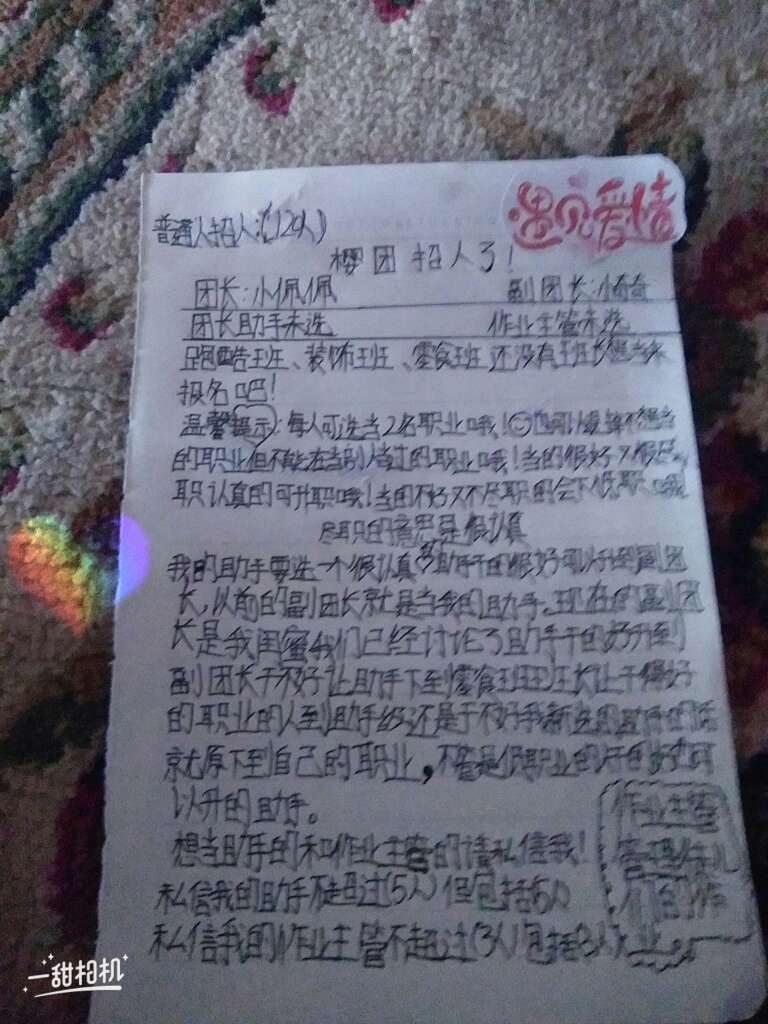 遇见爱情
普通人招人:(12人)
樱团招人了!
团长:小佩佩 副团长:小奇奇
团长助手未选 作业主管未选
跑酷班、装饰班、零食班还没有班长想当来
报名吧!
温馨提示:每人可选当2名职业哦!也可以选择不想当
的职业但不能在当别人当过的职业哦!当的很好又很尽
职认真的可升职哦!当的不好又不尽职的会下低职哦
尽职的意思是很认真
我的助手要选一个很认真的助手干的很好可以升到副团
长,以前的副团长就是当我的助手。现在的副团
长是我闺蜜我们已经讨论了助手干的好升到
副团长干不好让助手下到零食班班长让干得好
的职业的人到助手级还是干不好我新选的助手的话
就原下到自己的职业,不管是低职业的干的好也可
以升的助手。
想当助手的和作业主管的请私信我!
私信我的助手不超过(5人)但包括5人
私信我的作业主管不超过(3人)包括3人)
作业主管
管理
们的作
业
一甜相机